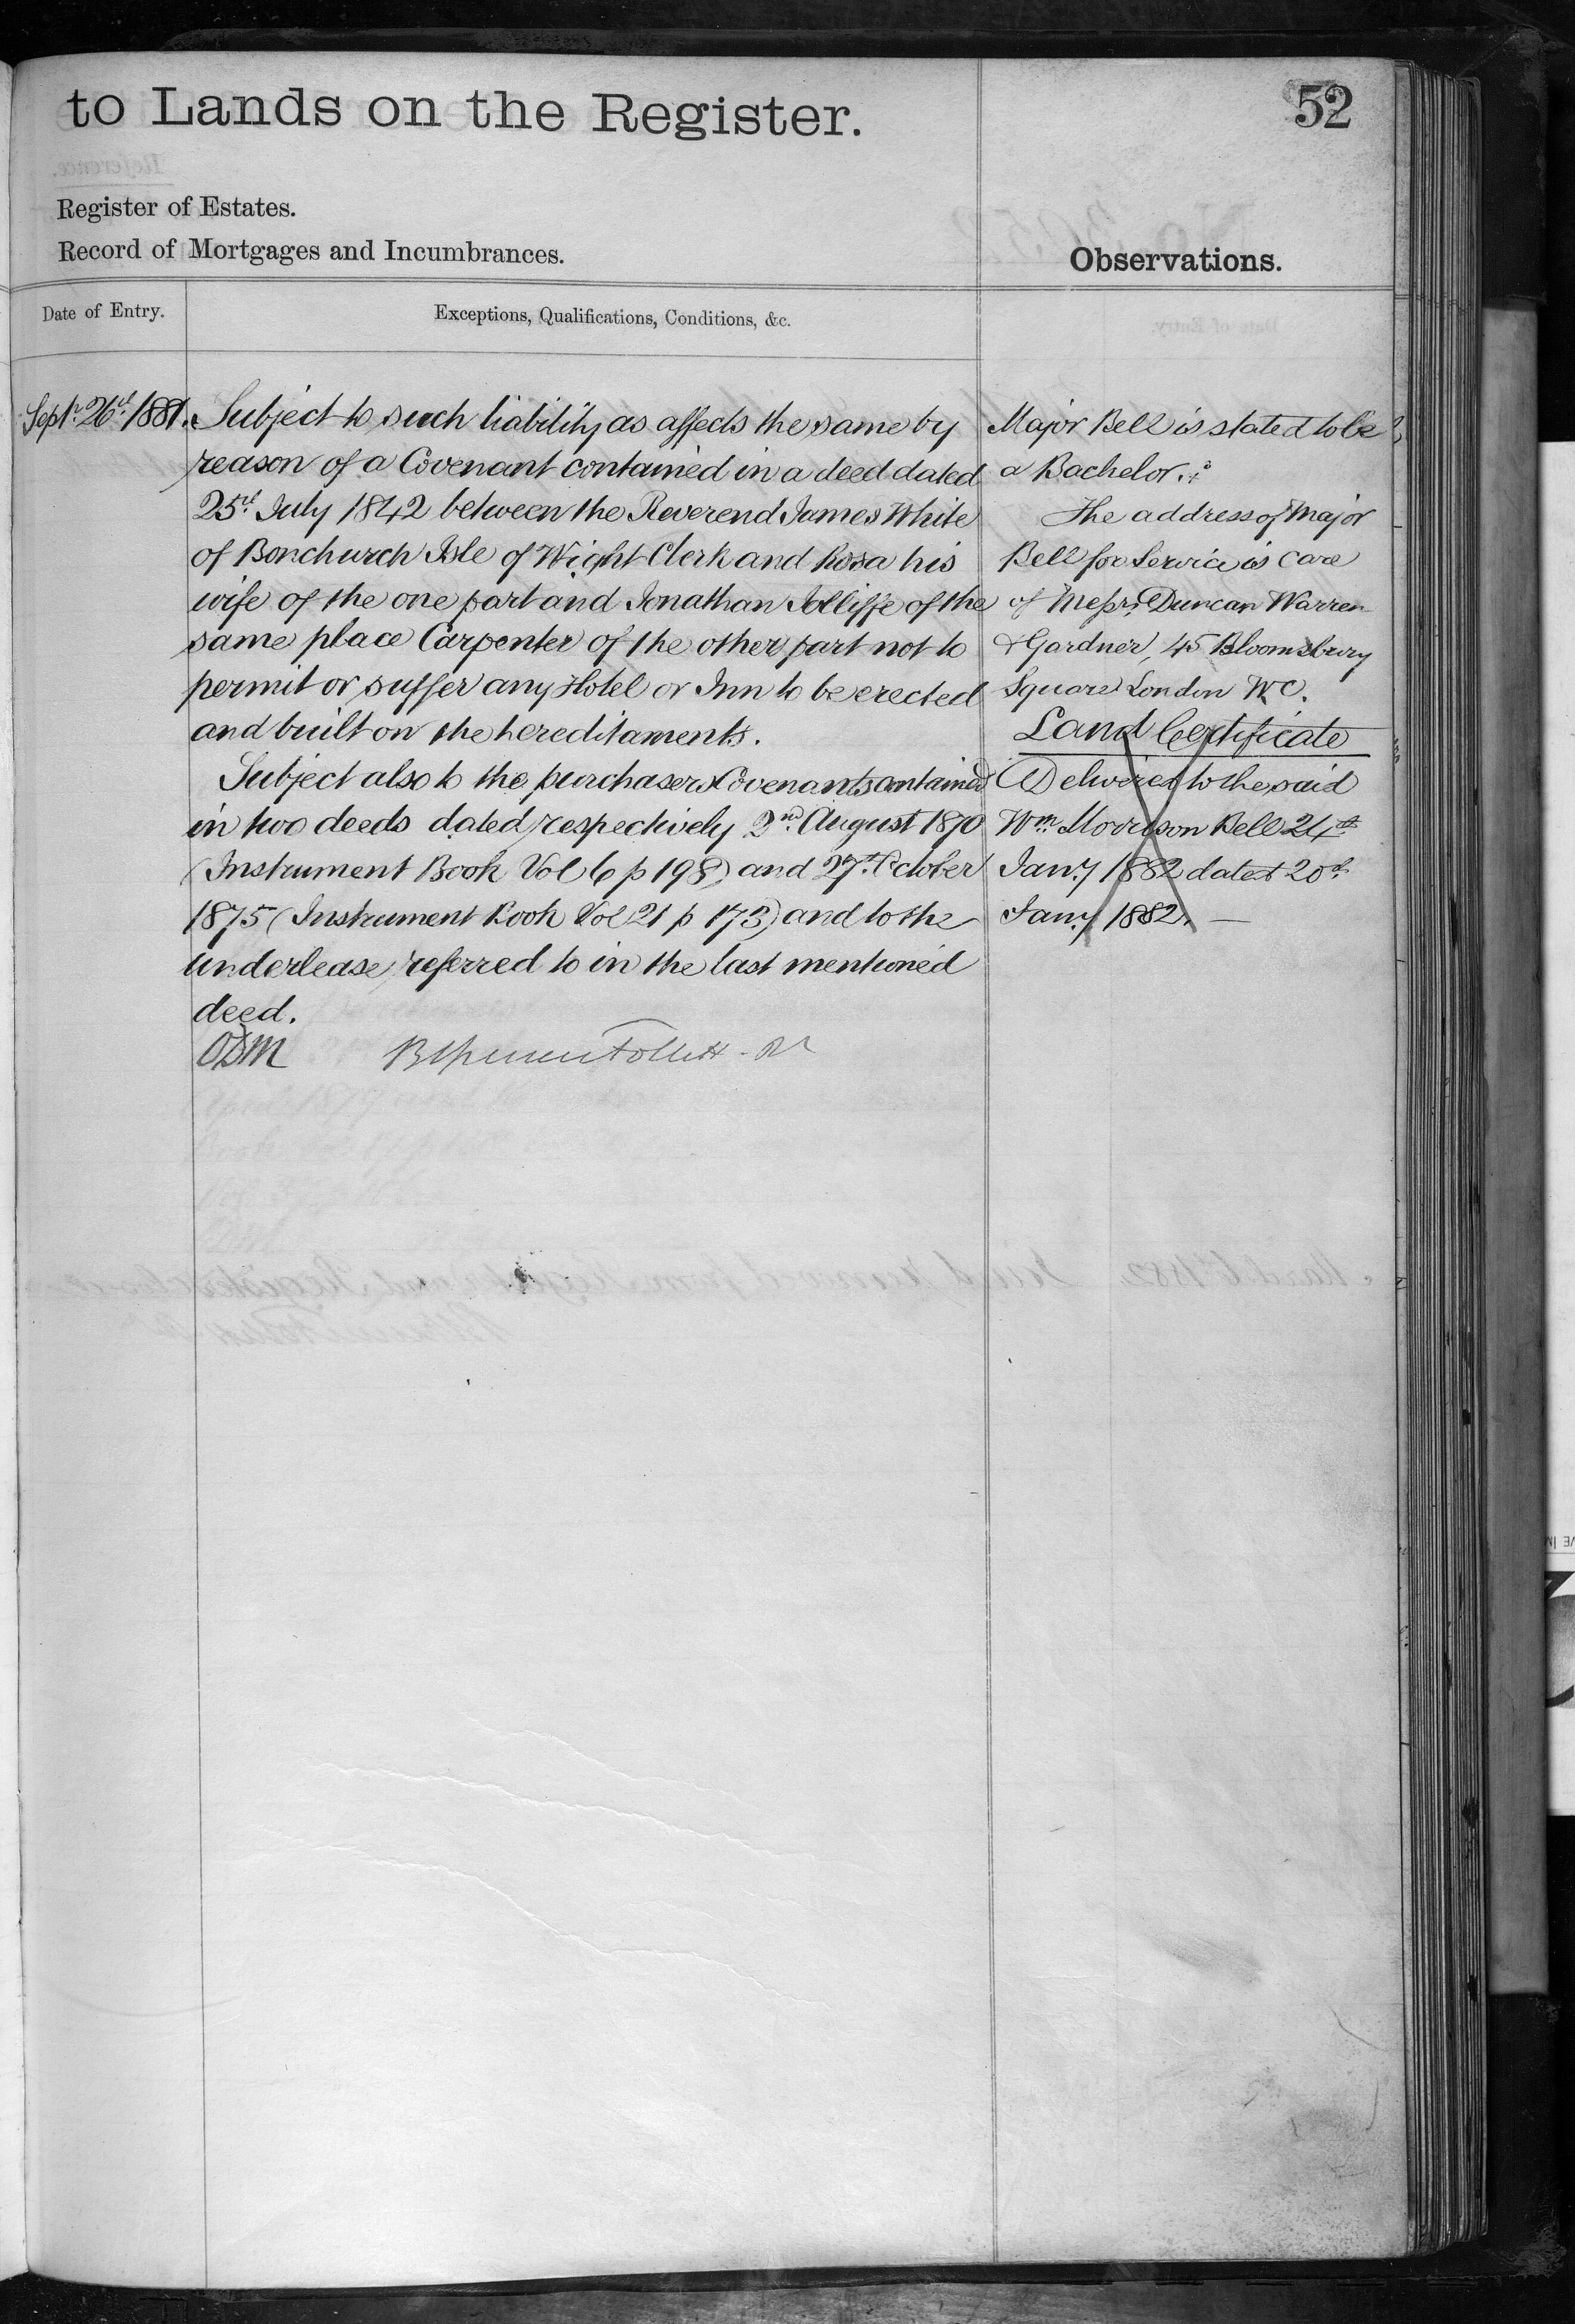 to Lands on the Register.
52
Register of Estates.
Record of Mortgages and Incumbrances.
Observations.
Date of Entry.
Exceptions, Qualifications, Conditions, &c.
Septr. 26th 1881.
Subject to such liability as affects the same by
reason of a Covenant contained in a deed dated
25th July 1842 between the Reverend James White
of Bonchurch Isle of Wight Clerk and Rosa his
wife of the one part and Jonathan Jolliffe of the
same place Carpenter of the other part not to
permit or suffer any Hotel or Inn to be erected
and built on the hereditaments.
Subject also to the purchasers Covenants contained
in two deeds dated respectively 2nd August 1870
(Instrument Book Vol 6 p 198) and 27th October
1875 (Instrument Book Vol 21 p 173) and to the
underlease referred to in the last mentioned
deed.
Major Bell is stated to be
a Bachelor.
The address of Major
Bell for Service is care
of Messrs. Duncan Warren
& Gardner, 45 Bloomsbury
Square London W.C.
Land Certificate
Delivered to the said
Wm. Morrison Bell 24th
Jany 1882 dated 20th
Jany 1882. —